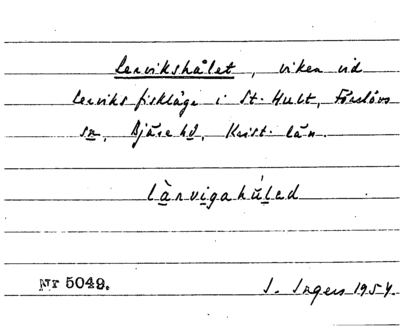 Lervikshålet, viken vid
Lerviks fiskläge i St. Hult, Förslövs
sn, Bjäre hd, Krist. län.
lä̀rvigahúled
Nr 5049. J. Ingers 1954.